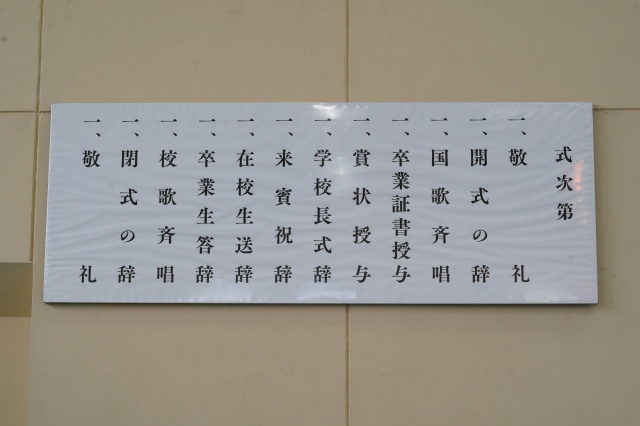 式次第
一、敬礼
一、開式の辞
一、国歌斉唱
一、卒業証書授与
一、賞状授与
一、学校長式辞
一、来賓祝辞
一、在校生送辞
一、卒業生答辞
一、校歌斉唱
一、閉式の辞
一、敬礼